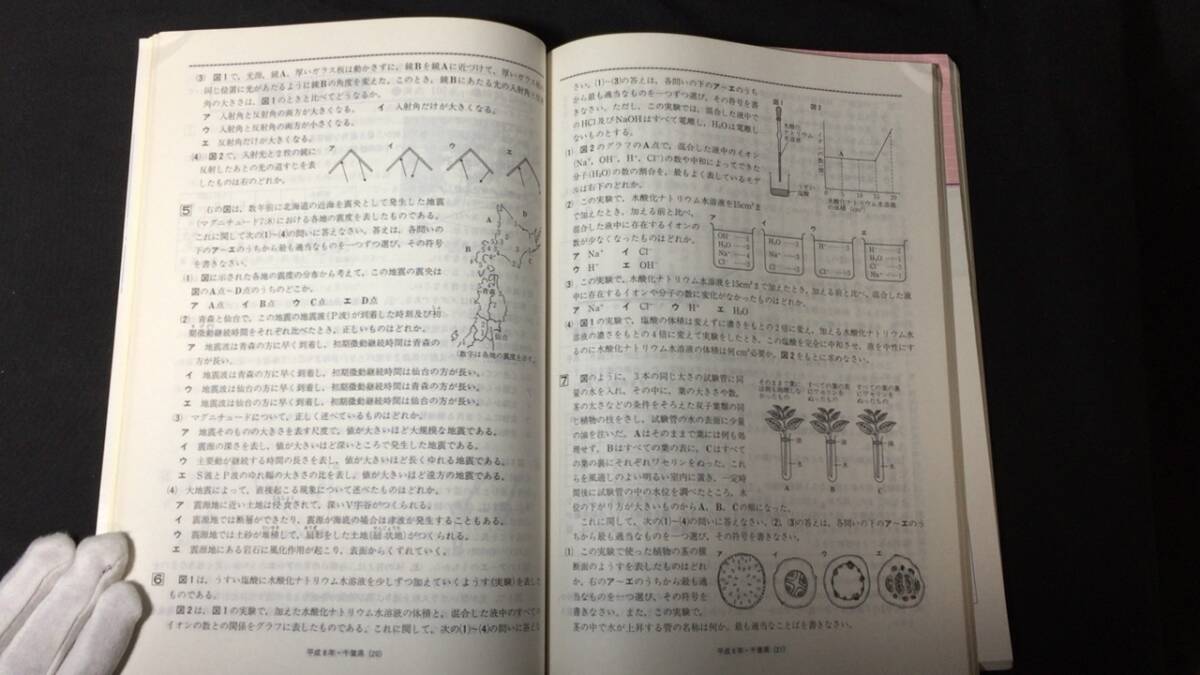 (3) 図1で,光源,鏡A,厚いガラス板は動かさずに,鏡Bを鏡Aに近づけて,厚いガラス
同じ位置に光があたるように鏡Bの角度を変えた。このとき,鏡Bにあたる光の入射角と反射
角の大きさは,図1のときと比べてどうなるか。
ア 入射角と反射角の両方が大きくなる。 イ 入射角だけが大きくなる。
ウ 入射角と反射角の両方が小さくなる。
エ 反射角だけが大きくなる。
(4) 図2で,入射光と2枚の鏡に
反射したあとの光の道すじを表
したものは右のどれか。
ア イ ウ エ
5 右の図は,数年前に北海道の近海を震央として発生した地震
(マグニチュード7.8)における各地の震度を表したものである。
これに関して次の(1)~(4)の問いに答えなさい。答えは,各問いの
下のア-エのうちから最も適当なものを一つずつ選び,その符号
を書きなさい。
(1) 図に示された各地の震度の分布から考えて,この地震の震央は
図のA点~D点のうちのどこか。
ア A点 イ B点 ウ C点 エ D点
(2) 青森と仙台で,この地震の地震波(P波)が到着した時刻及び初
期微動継続時間をそれぞれ比べたとき,正しいものはどれか。
ア 地震波は青森の方に早く到着し,初期微動継続時間は青森の
方が長い。
イ 地震波は青森の方に早く到着し,初期微動継続時間は仙台の方が長い。
ウ 地震波は仙台の方に早く到着し,初期微動継続時間は青森の方が長い。
エ 地震波は仙台の方に早く到着し,初期微動継続時間は仙台の方が長い。
A
B
青森
仙台
(数字は各地の震度を示す。)
(3) マグニチュードについて,正しく述べているものはどれか。
ア 地震そのものの大きさを表す尺度で,値が大きいほど大規模な地震である。
イ 震源の深さを表し,値が大きいほど深いところで発生した地震である。
ウ 主要動が継続する時間の長さを表し,値が大きいほど長くゆれる地震である。
エ S波とP波のゆれ幅の大きさの比を表し,値が大きいほど遠方の地震である。
(4) 大地震によって,直接起こる現象について述べたものはどれか。
ア 震源地に近い土地は侵食されて,深いV字谷がつくられる。
イ 震源地では断層ができたり,震源が海底の場合は津波が発生することもある。
ウ 震源地では土砂が堆積して,扇形をした土地(扇状地)がつくられる。
エ 震源地にある岩石に風化作用が起こり,表面からくずれていく。
6 図1は,うすい塩酸に水酸化ナトリウム水溶液を少しずつ加えていくようす(実験)を表した
ものである。
図2は,図1の実験で,加えた水酸化ナトリウム水溶液の体積と,混合した液中のすべての
イオンの数との関係をグラフに表したものである。これに関して,次の(1)~(4)の問いに答えな
平成6年・千葉県(20)
さい。(1)~(3)の答えは,各問いの下のア-エのうち
から最も適当なものを一つずつ選び,その符号を書
きなさい。ただし,この実験では,混合した液中で
のHCl及びNaOHはすべて電離し,H₂Oは電離し
ないものとする。
(1) 図2のグラフのA点で,混合した液中のイオン
(Na⁺, OH⁻, H⁺, Cl⁻)の数や中和によってできた
分子(H₂O)の数の割合を,最もよく表しているモデ
ルは右下のどれか。
図1
水酸化
ナトリウム
水溶液
うすい
塩酸
図2
A
0 5 10 15 20
水酸化ナトリウム水溶液
の体積 (cm³)
(2) この実験で,水酸化ナトリウム水溶液を15cm³ま
で加えたとき,加える前と比べ,
混合した液中に存在するイオンの
数が少なくなったものはどれか。
ア Na⁺ イ Cl⁻
ウ H⁺ エ OH⁻
ア イ ウ エ
(3) この実験で,水酸化ナトリウム水溶液を15cm³まで加えたとき,加える前と比べ,混合した液
中に存在するイオンや分子の数に変化がなかったものはどれか。
ア Na⁺ イ Cl⁻ ウ H⁺ エ H₂O
(4) 図1の実験で,塩酸の体積は変えずに濃さをもとの2倍に変え,加える水酸化ナトリウム水
溶液の濃さをもとの4倍に変えて実験をしたとき,この塩酸を完全に中和させ,液を中性にす
るのに水酸化ナトリウム水溶液の体積は何cm³必要か,図2をもとに求めなさい。
7 図のように,3本の同じ太さの試験管に同
量の水を入れ,その中に,葉の大きさや数,
茎の太さなどの条件をそろえた双子葉類の同
じ植物の枝をさし,試験管の水の表面に少量
の油を注いだ。Aはそのままで葉には何も処
理せず,Bはすべての葉の表に,Cはすべて
の葉の裏にそれぞれワセリンをぬった。これ
らを風通しのよい明るい室内に置き,一定時
間後に試験管の中の水位を調べたところ,水
位の下がり方が大きいものからA,B,Cの順になった。
そのままで葉に
は何も処理しな
かったもの
すべての葉の表
にワセリンを
ぬったもの
すべての葉の裏
にワセリンを
ぬったもの
油 油 油
水 水 水
A B C
これに関して,次の(1)~(4)の問いに答えなさい。(2),(3)の答えは,各問いの下のア-エのうち
から最も適当なものを一つずつ選び,その符号を書きなさい。
(1) この実験で使った植物の茎の横
断面のようすを表したものはどれ
か,右のア-エのうちから最も適
当なものを一つ選び,その符号を
書きなさい。また,この実験で,
茎の中で水が上昇する管の名称は何か。最も適当なことばを書きなさい。
ア イ ウ エ
平成6年・千葉県(21)